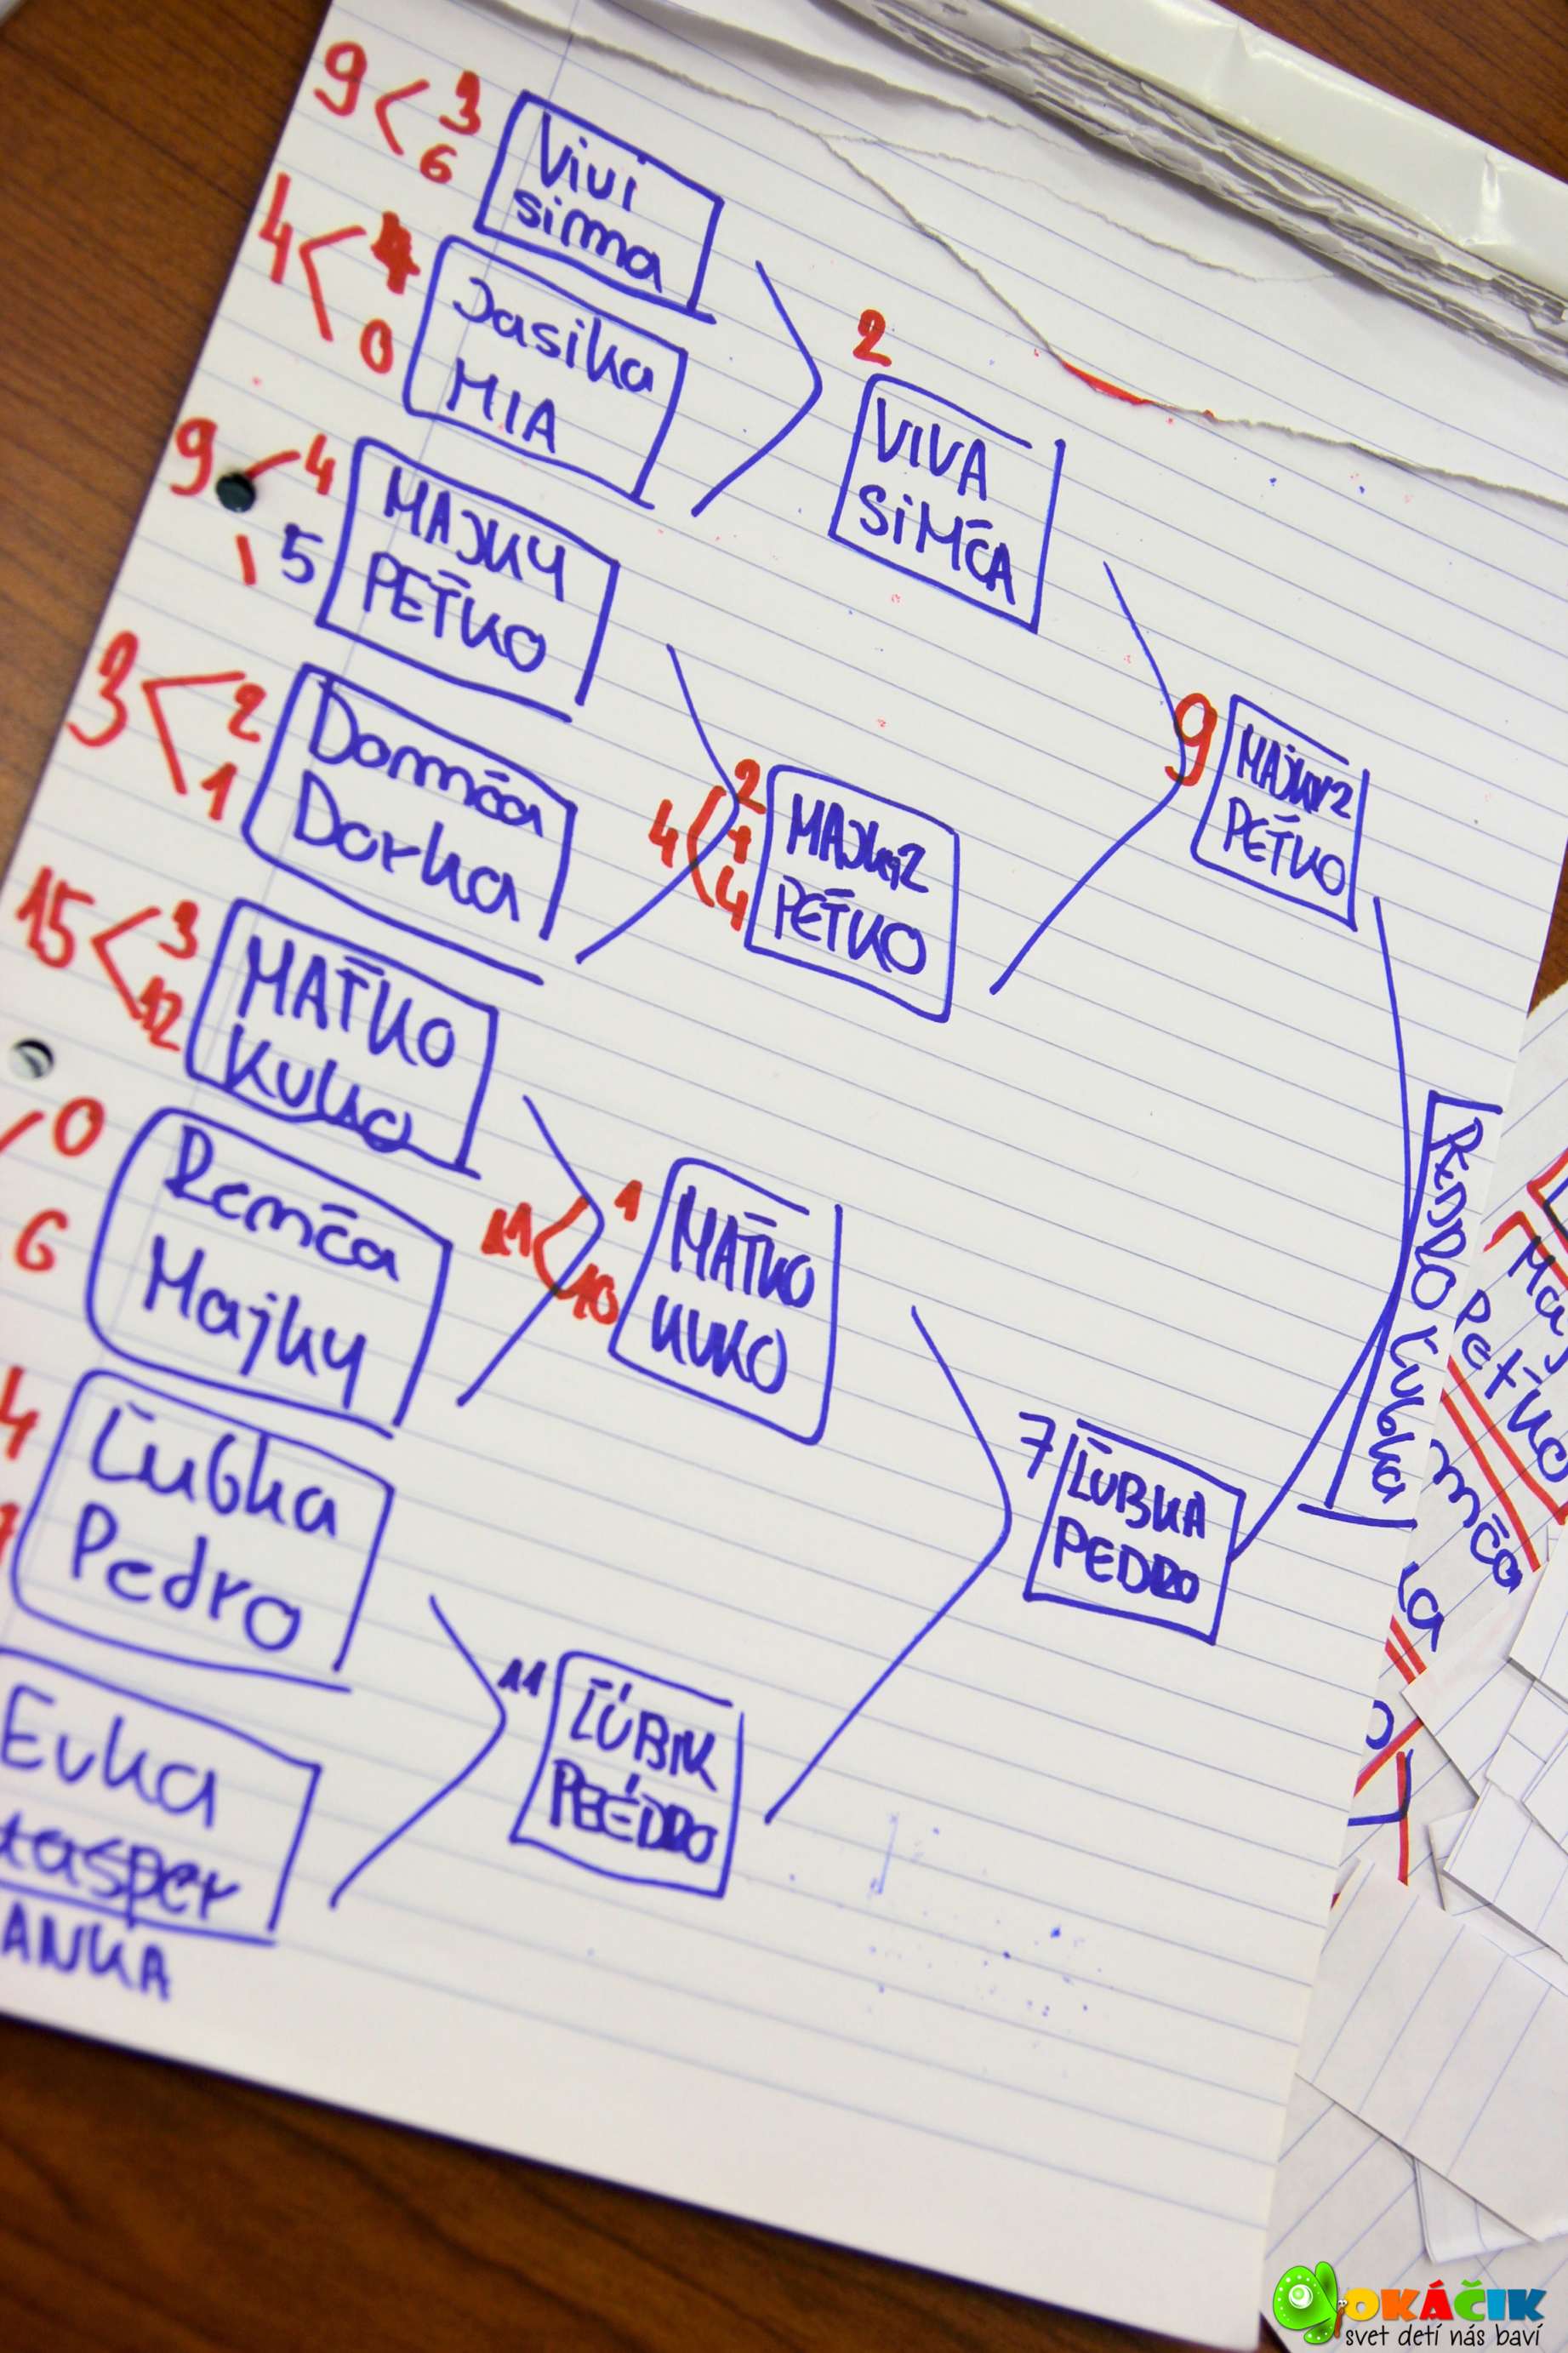 9 < 3
6
Vivi
sima
4 < 4
0
Jasika
MIA
2
VIVA
SIMČA
9 4
5
MAJKY
PEŤKO
3 < 2
1
Domča
Dorka
4 2
1
4
PEŤKO
9
PEŤKO
15 < 3
12
MAŤKO
Kuko
0
6
Remča
Majky
11 < 1
10
MAŤKO
KUKO
4
Ľubka
Pedro
Evka
Kasper
ANKA
11
ĽÚBIK
7
ĽUBKA
PEDRO
PEDRO Ľubka
Peťko
mča
OKÁČIK
svet detí nás baví